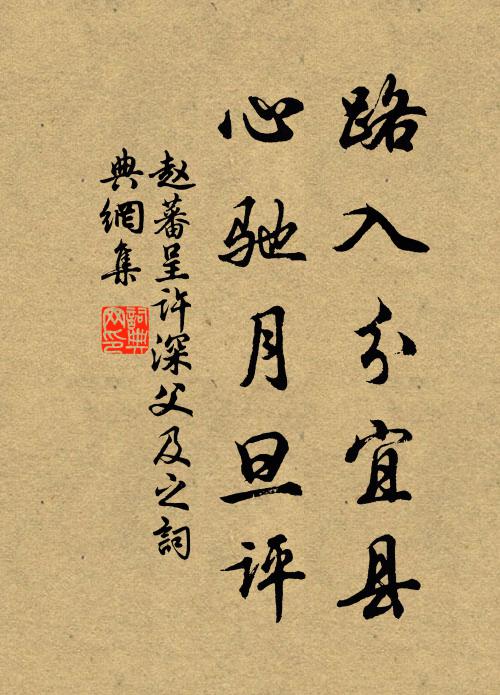 路入分宜县
心驰月旦评
赵蕃呈许深父及之詞
典網集
詞典网印